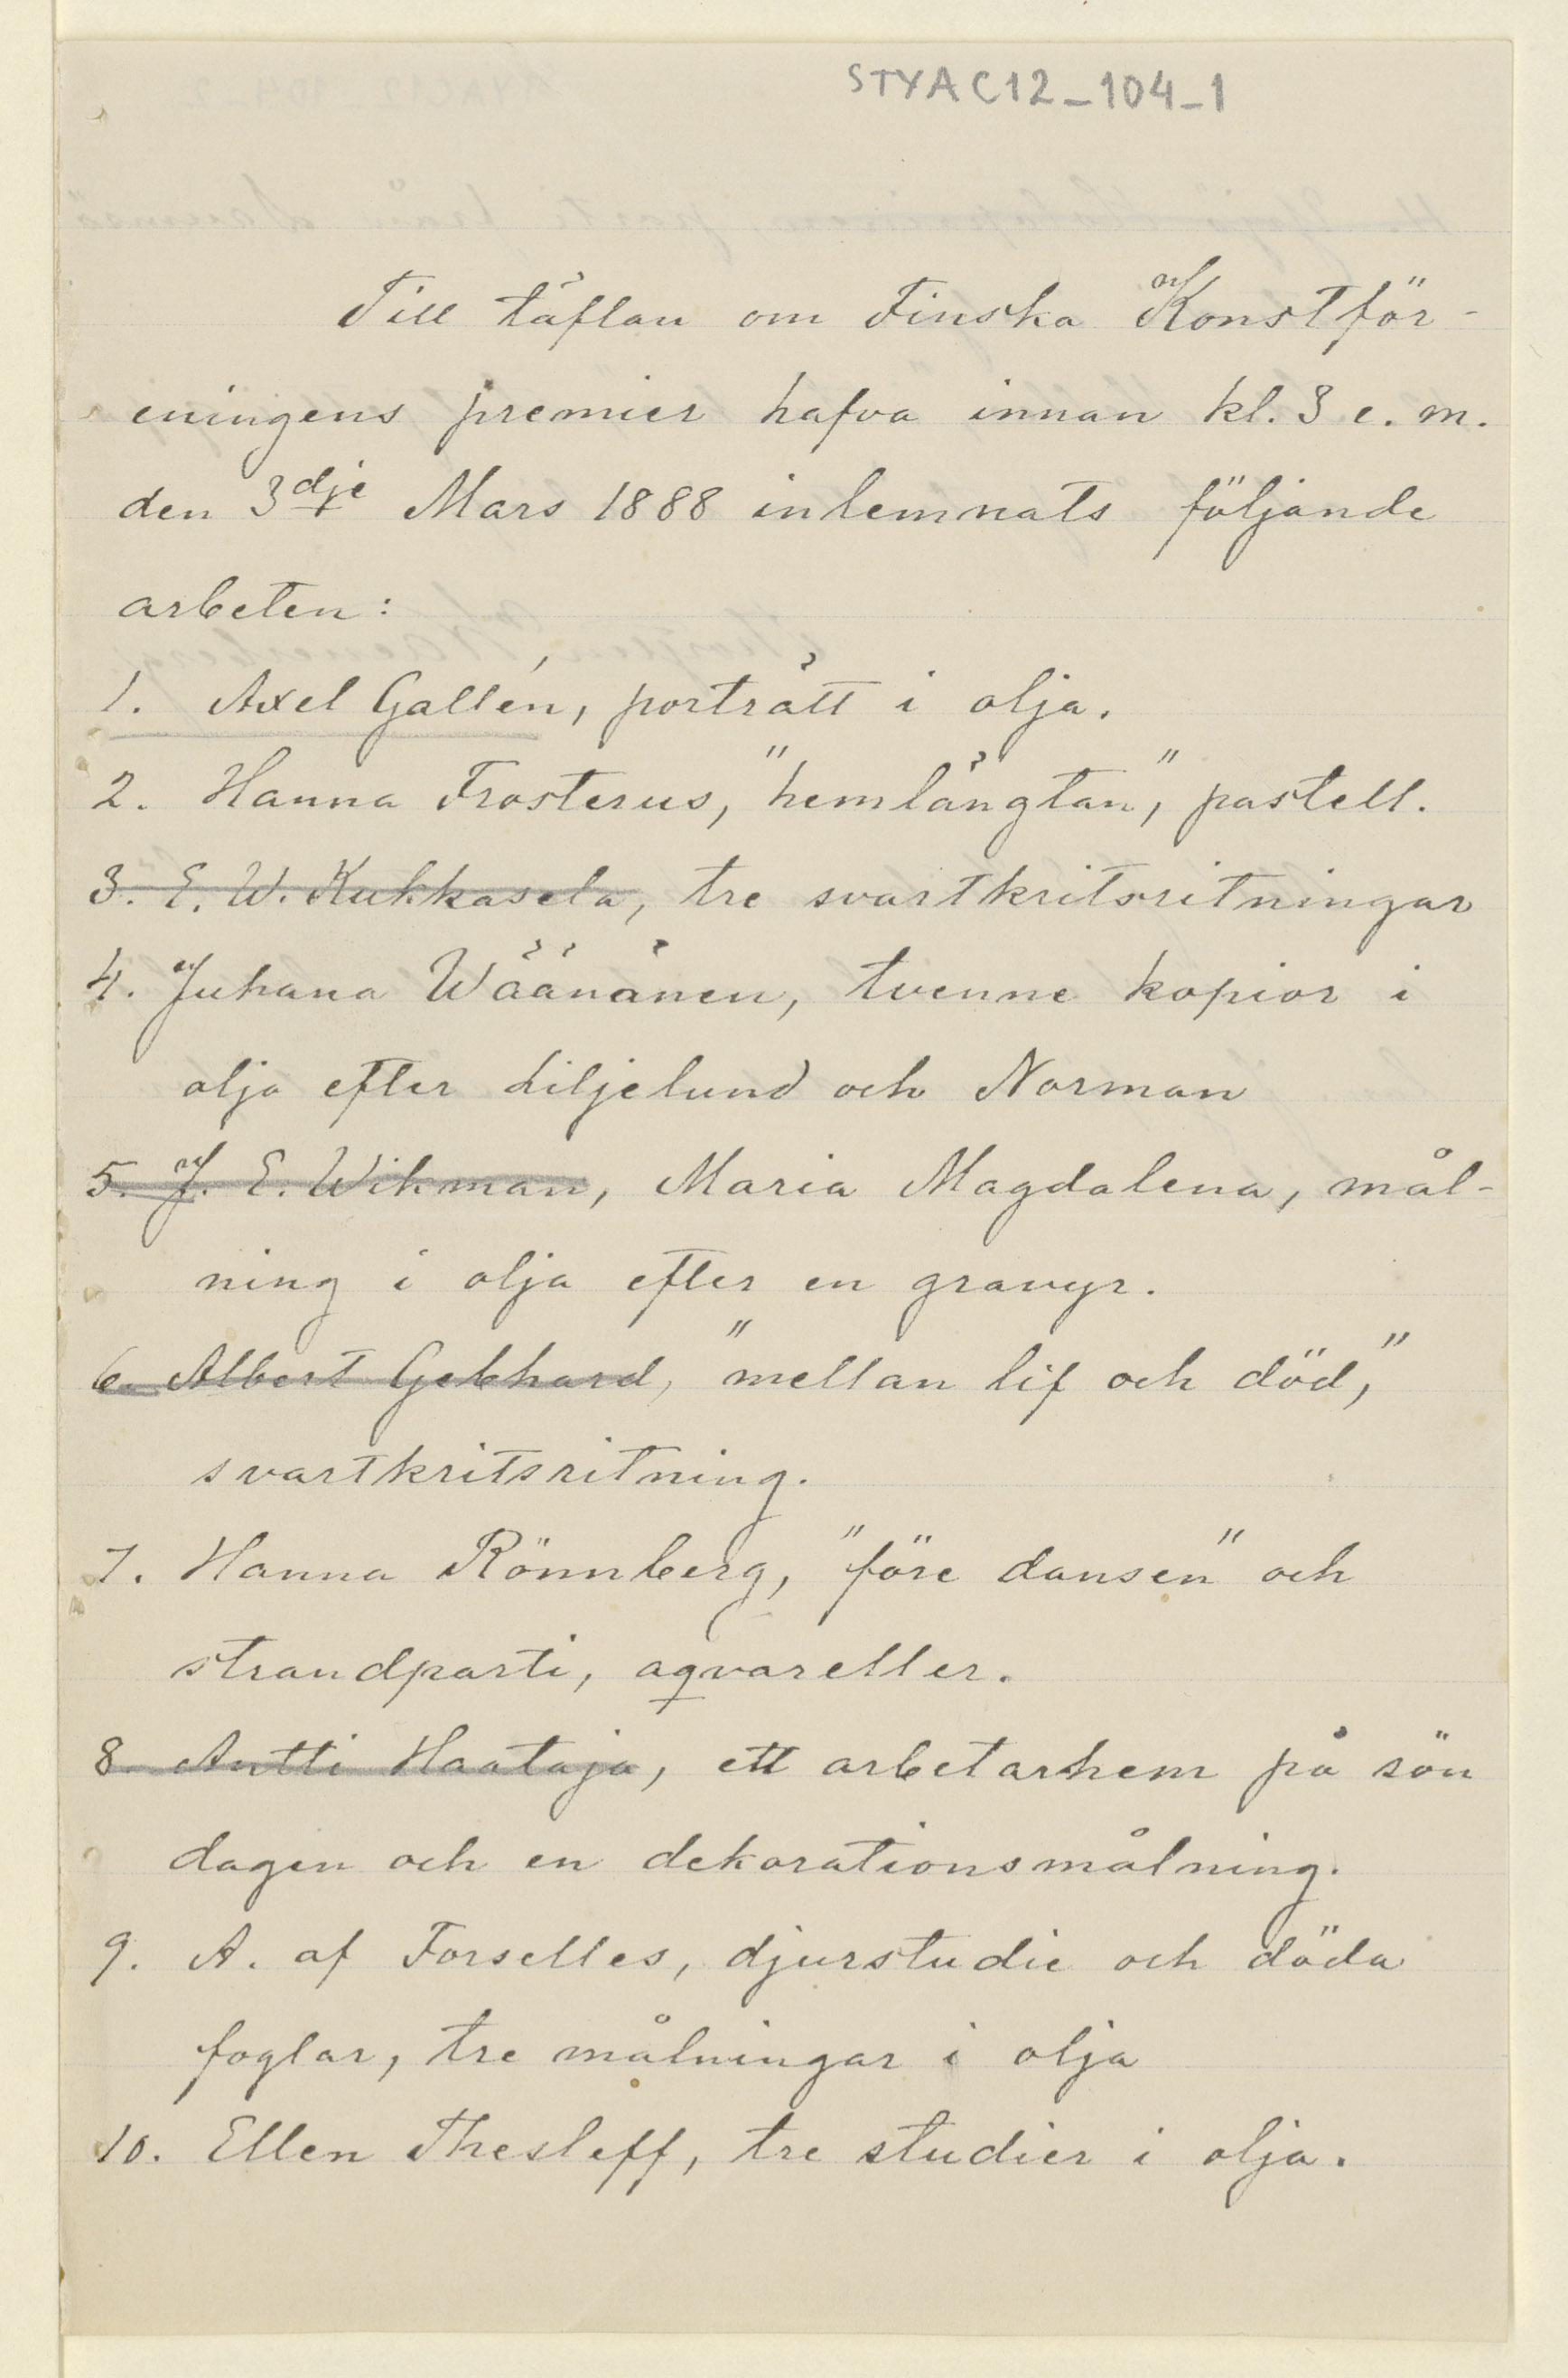 STYA C12_104_1
Till täflan om Finska Konstför-
eningens premier hafva innan kl. 3 e. m.
den 3dje Mars 1888 inlemnats följande
arbeten:
1. Axel Gallén, porträtt i olja.
2. Hanna Frosterus, "hemlängtan", pastell.
3. E. W. Kukkasela, tre svartkritsritningar
4. Juhana Wäänänen, tvenne kopior i
olja efter Liljelund och Norman
5. J. E. Wikman, Maria Magdalena, mål-
ning i olja efter en gravyr.
6. Albert Gebhard, "mellan lif och död,"
svartkritsritning.
7. Hanna Rönnberg, "före dansen" och
strandparti, aqvareller.
8. Antti Haataja, ett arbetarhem på sön
dagen och en dekorationsmålning.
9. A. af Forselles, djurstudie och döda
foglar, tre målningar i olja
10. Ellen Thesleff, tre studier i olja.